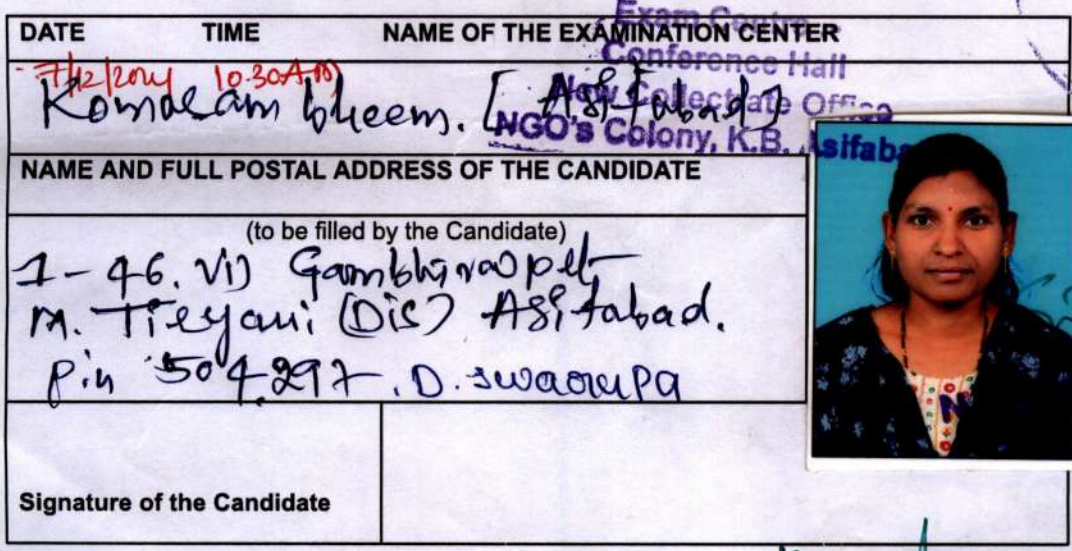 DATE TIME NAME OF THE EXAMINATION CENTER
Exam Centre
Conference Hall
New Collectrate Office
NGO's Colony, K.B. Asifaba
7/12/2024 10.30 AM
Komaram bheem. [Asifabad]
NAME AND FULL POSTAL ADDRESS OF THE CANDIDATE
(to be filled by the Candidate)
1-46. Vi) Gambhiraopet
M. Tiryani (Dis) Asifabad.
Pin 504297. D. swaroupa
Signature of the Candidate